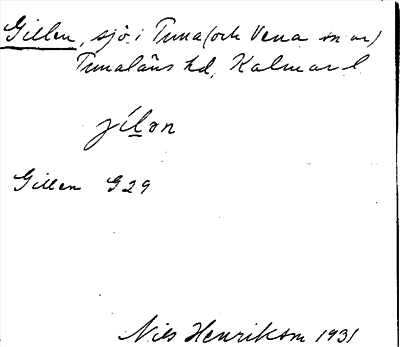 Gillen, sjö i Tuna (och Vena snar)
Tunaläns hd, Kalmar l
jílon
Gillen G29
Nils Henriksson 1931